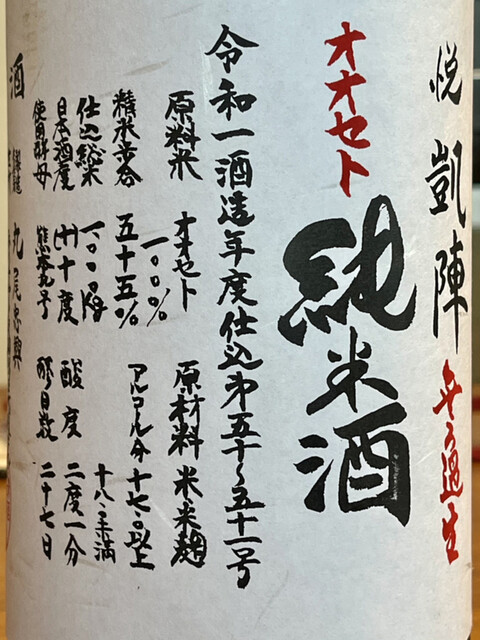 悦凱陣 無ろ過生
オオセト
純米酒
令和一酒造年度仕込第五十~五十一号
原料米 オオセト 一〇〇%
原材料 米米麹
精米歩合 五十五%
アルコール分 十七.〇以上
十八.〇未満
仕込総米 一一〇〇Kg
日本酒度 (+)十度
酸度 二度一分
使用酵母 熊本九号
醪日数 二十七日
酒
丸尾忠興